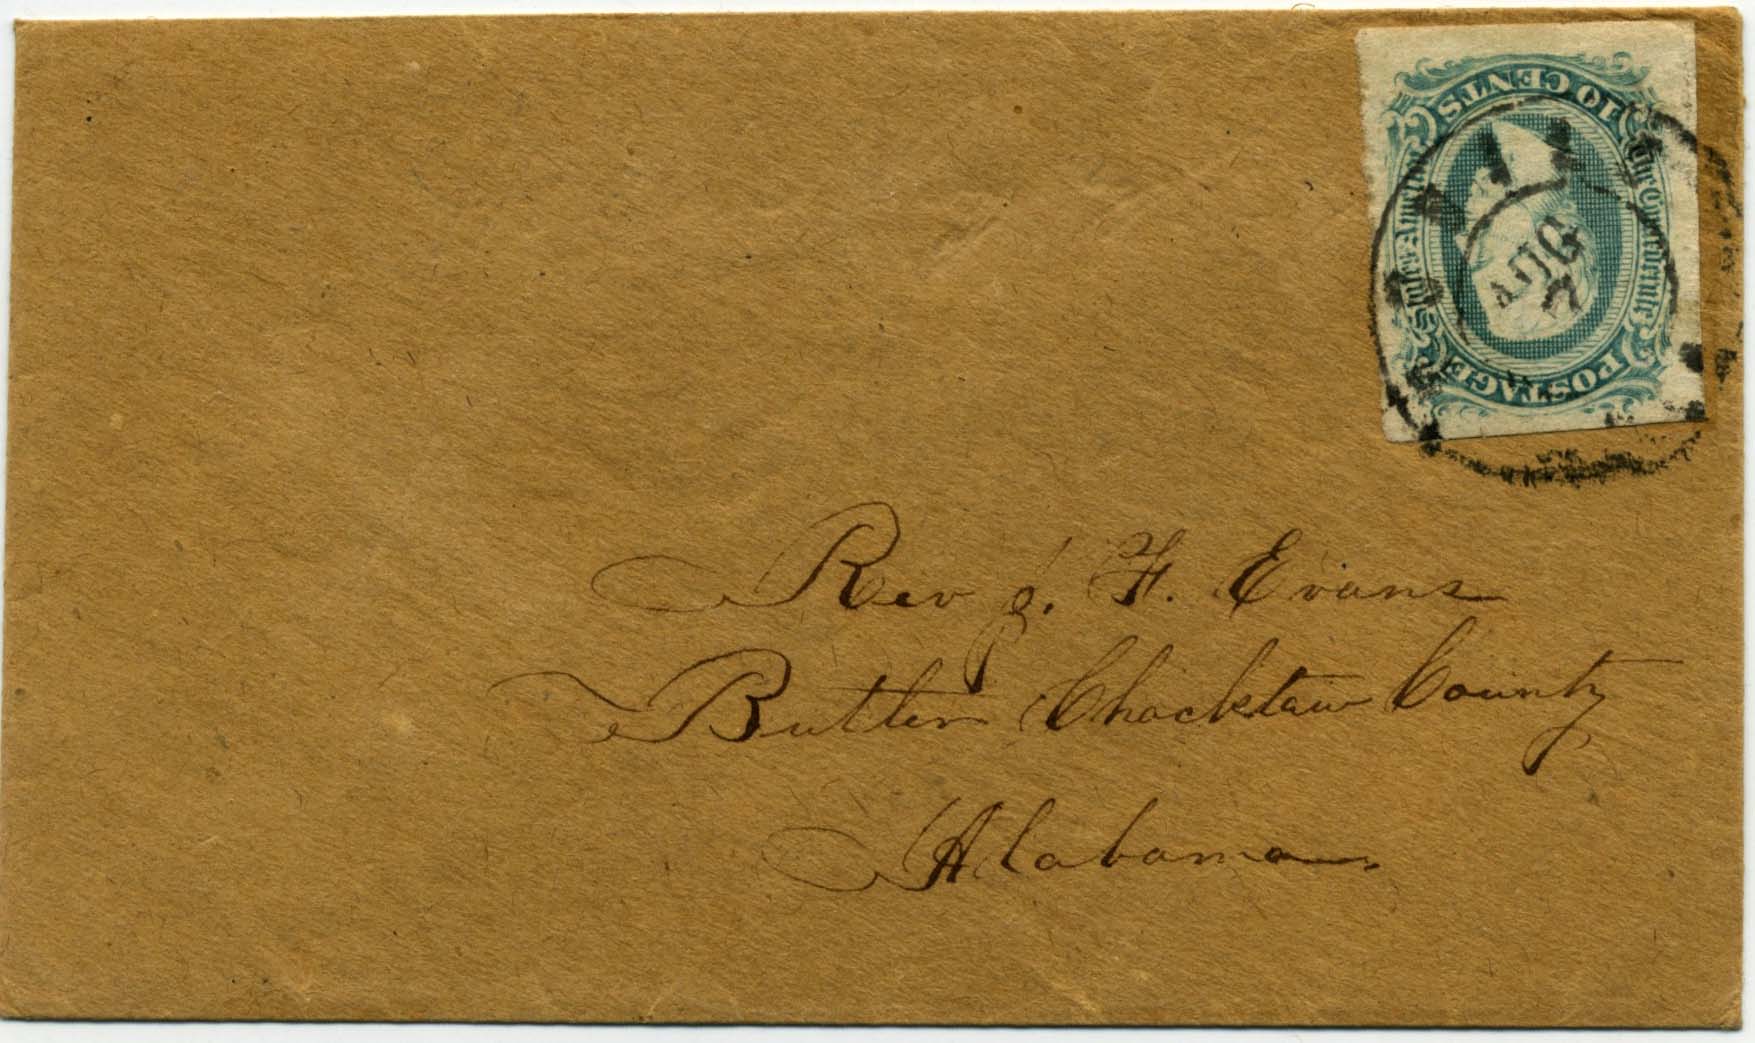 10 CENTS
The Confederate
States of America
POSTAGE
MOBILE
AUG
7
Rev J. F. Evans
Butler Chocktaw County
Alabama